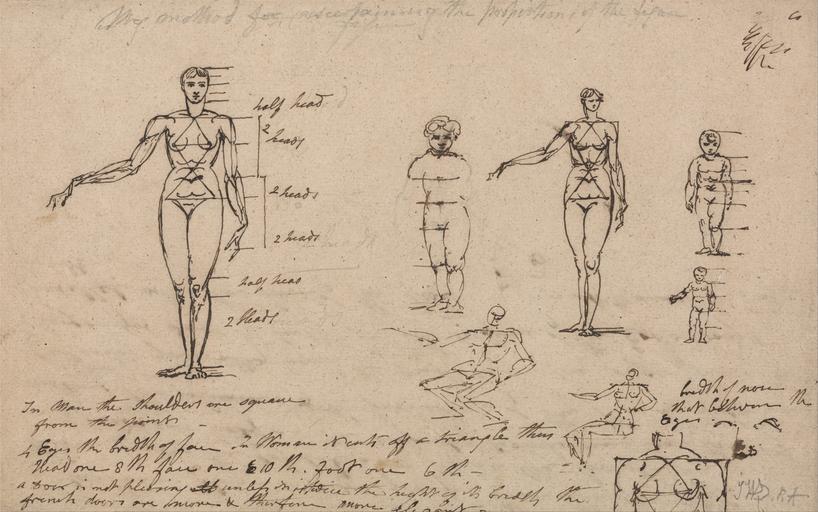 My method for ascertaining the proportions of the figure
half head
2 heads
2 heads
2 heads
half head
2 heads
In Man the shoulders are square
from the points
breadth of nose
that between the
Eyes
4 Eyes the breadth of face in Woman it cuts off a triangle thus
Head one 8th face one 10th. foot one 6th
a Door is not pleasing unless it is twice the height of its breadth the
french doors are more & therefore more